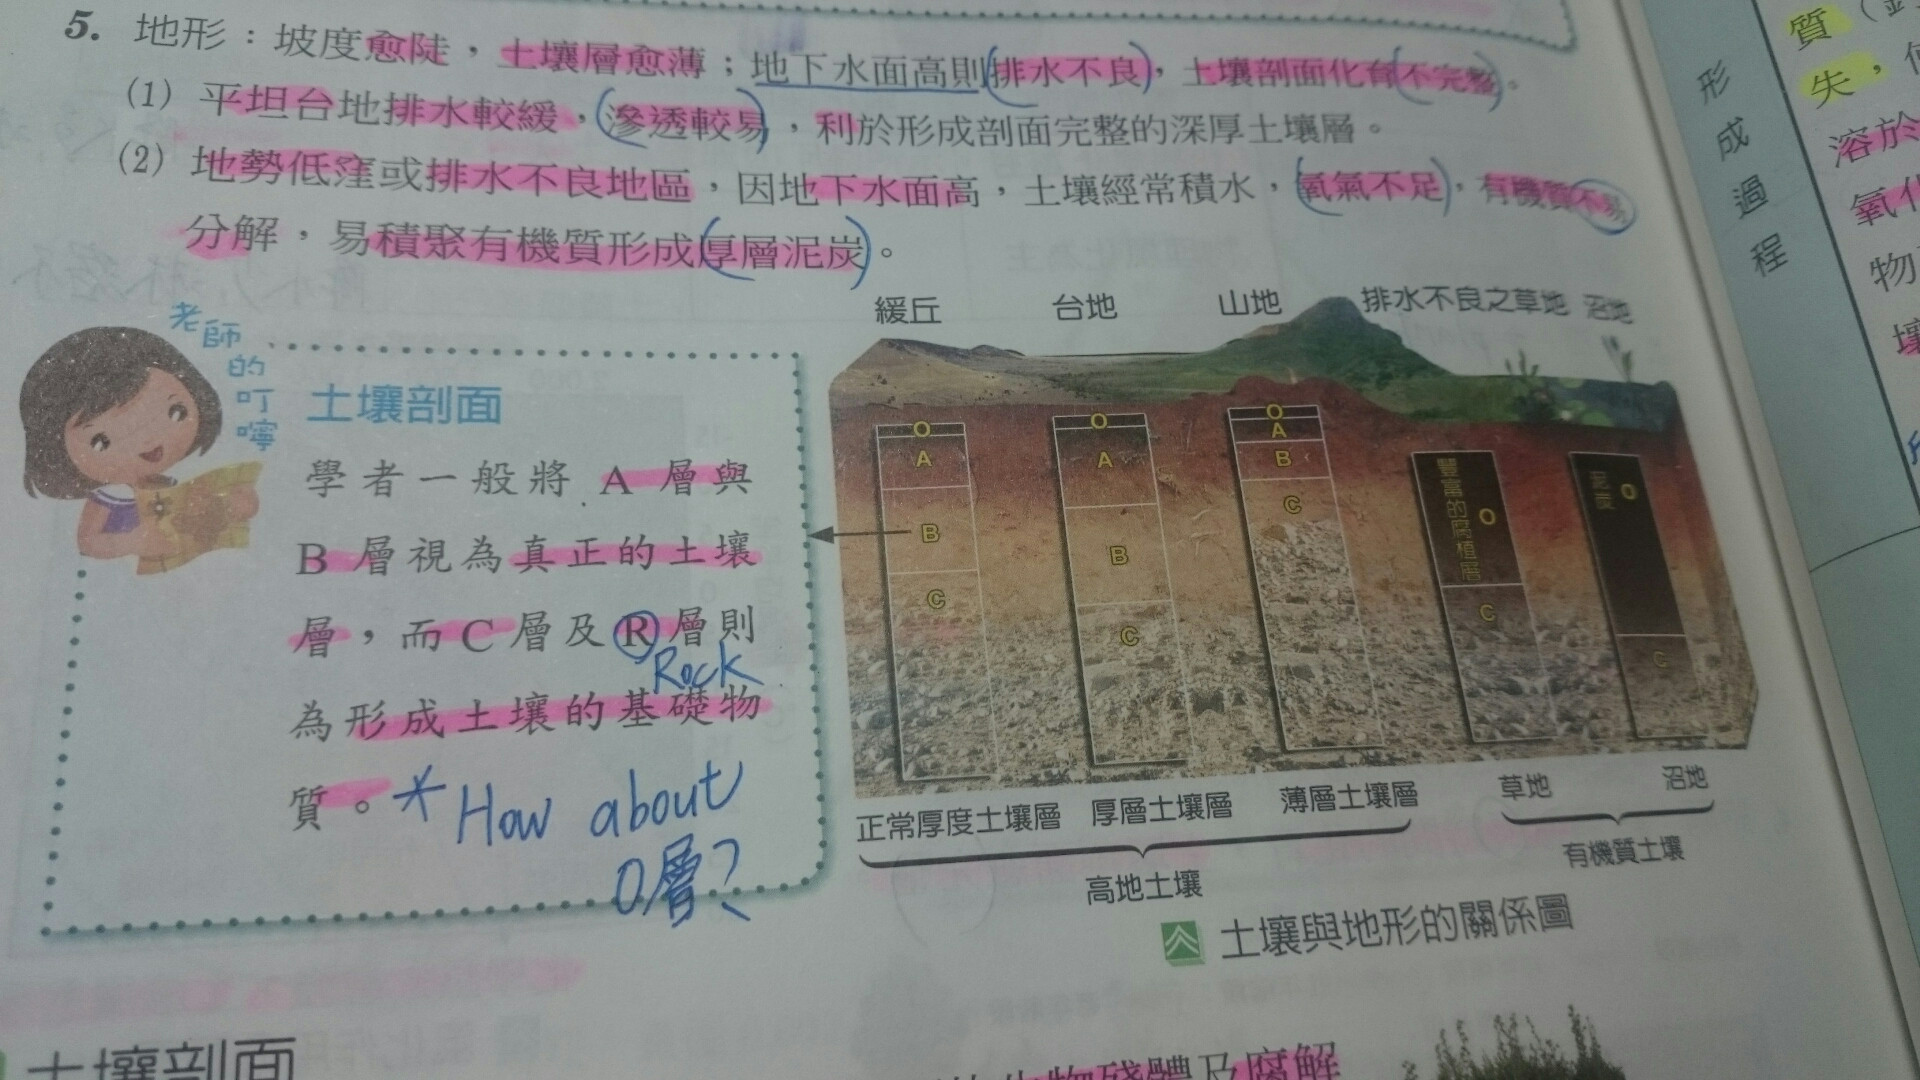 5. 地形：坡度愈陡，土壤層愈薄；地下水面高則排水不良，土壤剖面化育不完整。
(1) 平坦台地排水較緩，滲透較易，利於形成剖面完整的深厚土壤層。
(2) 地勢低窪或排水不良地區，因地下水面高，土壤經常積水，氧氣不足，有機質不易
分解，易積聚有機質形成厚層泥炭。
老師的叮嚀
土壤剖面
學者一般將 A 層與
B 層視為真正的土壤
層，而 C 層及 R 層則
Rock
為形成土壤的基礎物
質。* How about
O層？
緩丘 台地 山地 排水不良之草地 沼地
O A B C
O A B C
O A B C
豐富的腐植層 O C
泥炭 O C
正常厚度土壤層 厚層土壤層 薄層土壤層 草地 沼地
高地土壤 有機質土壤
土壤與地形的關係圖
土壤剖面
物殘體及腐解
形成過程
質
失，
溶於
氧化
物
壤